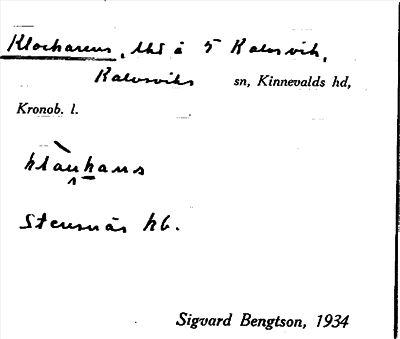 Klockarens, lht å 5 Kalvsvik,
Kalvsviks sn, Kinnevalds hd,
Kronob. l.
Stensnäs hb.
Sigvard Bengtson, 1934